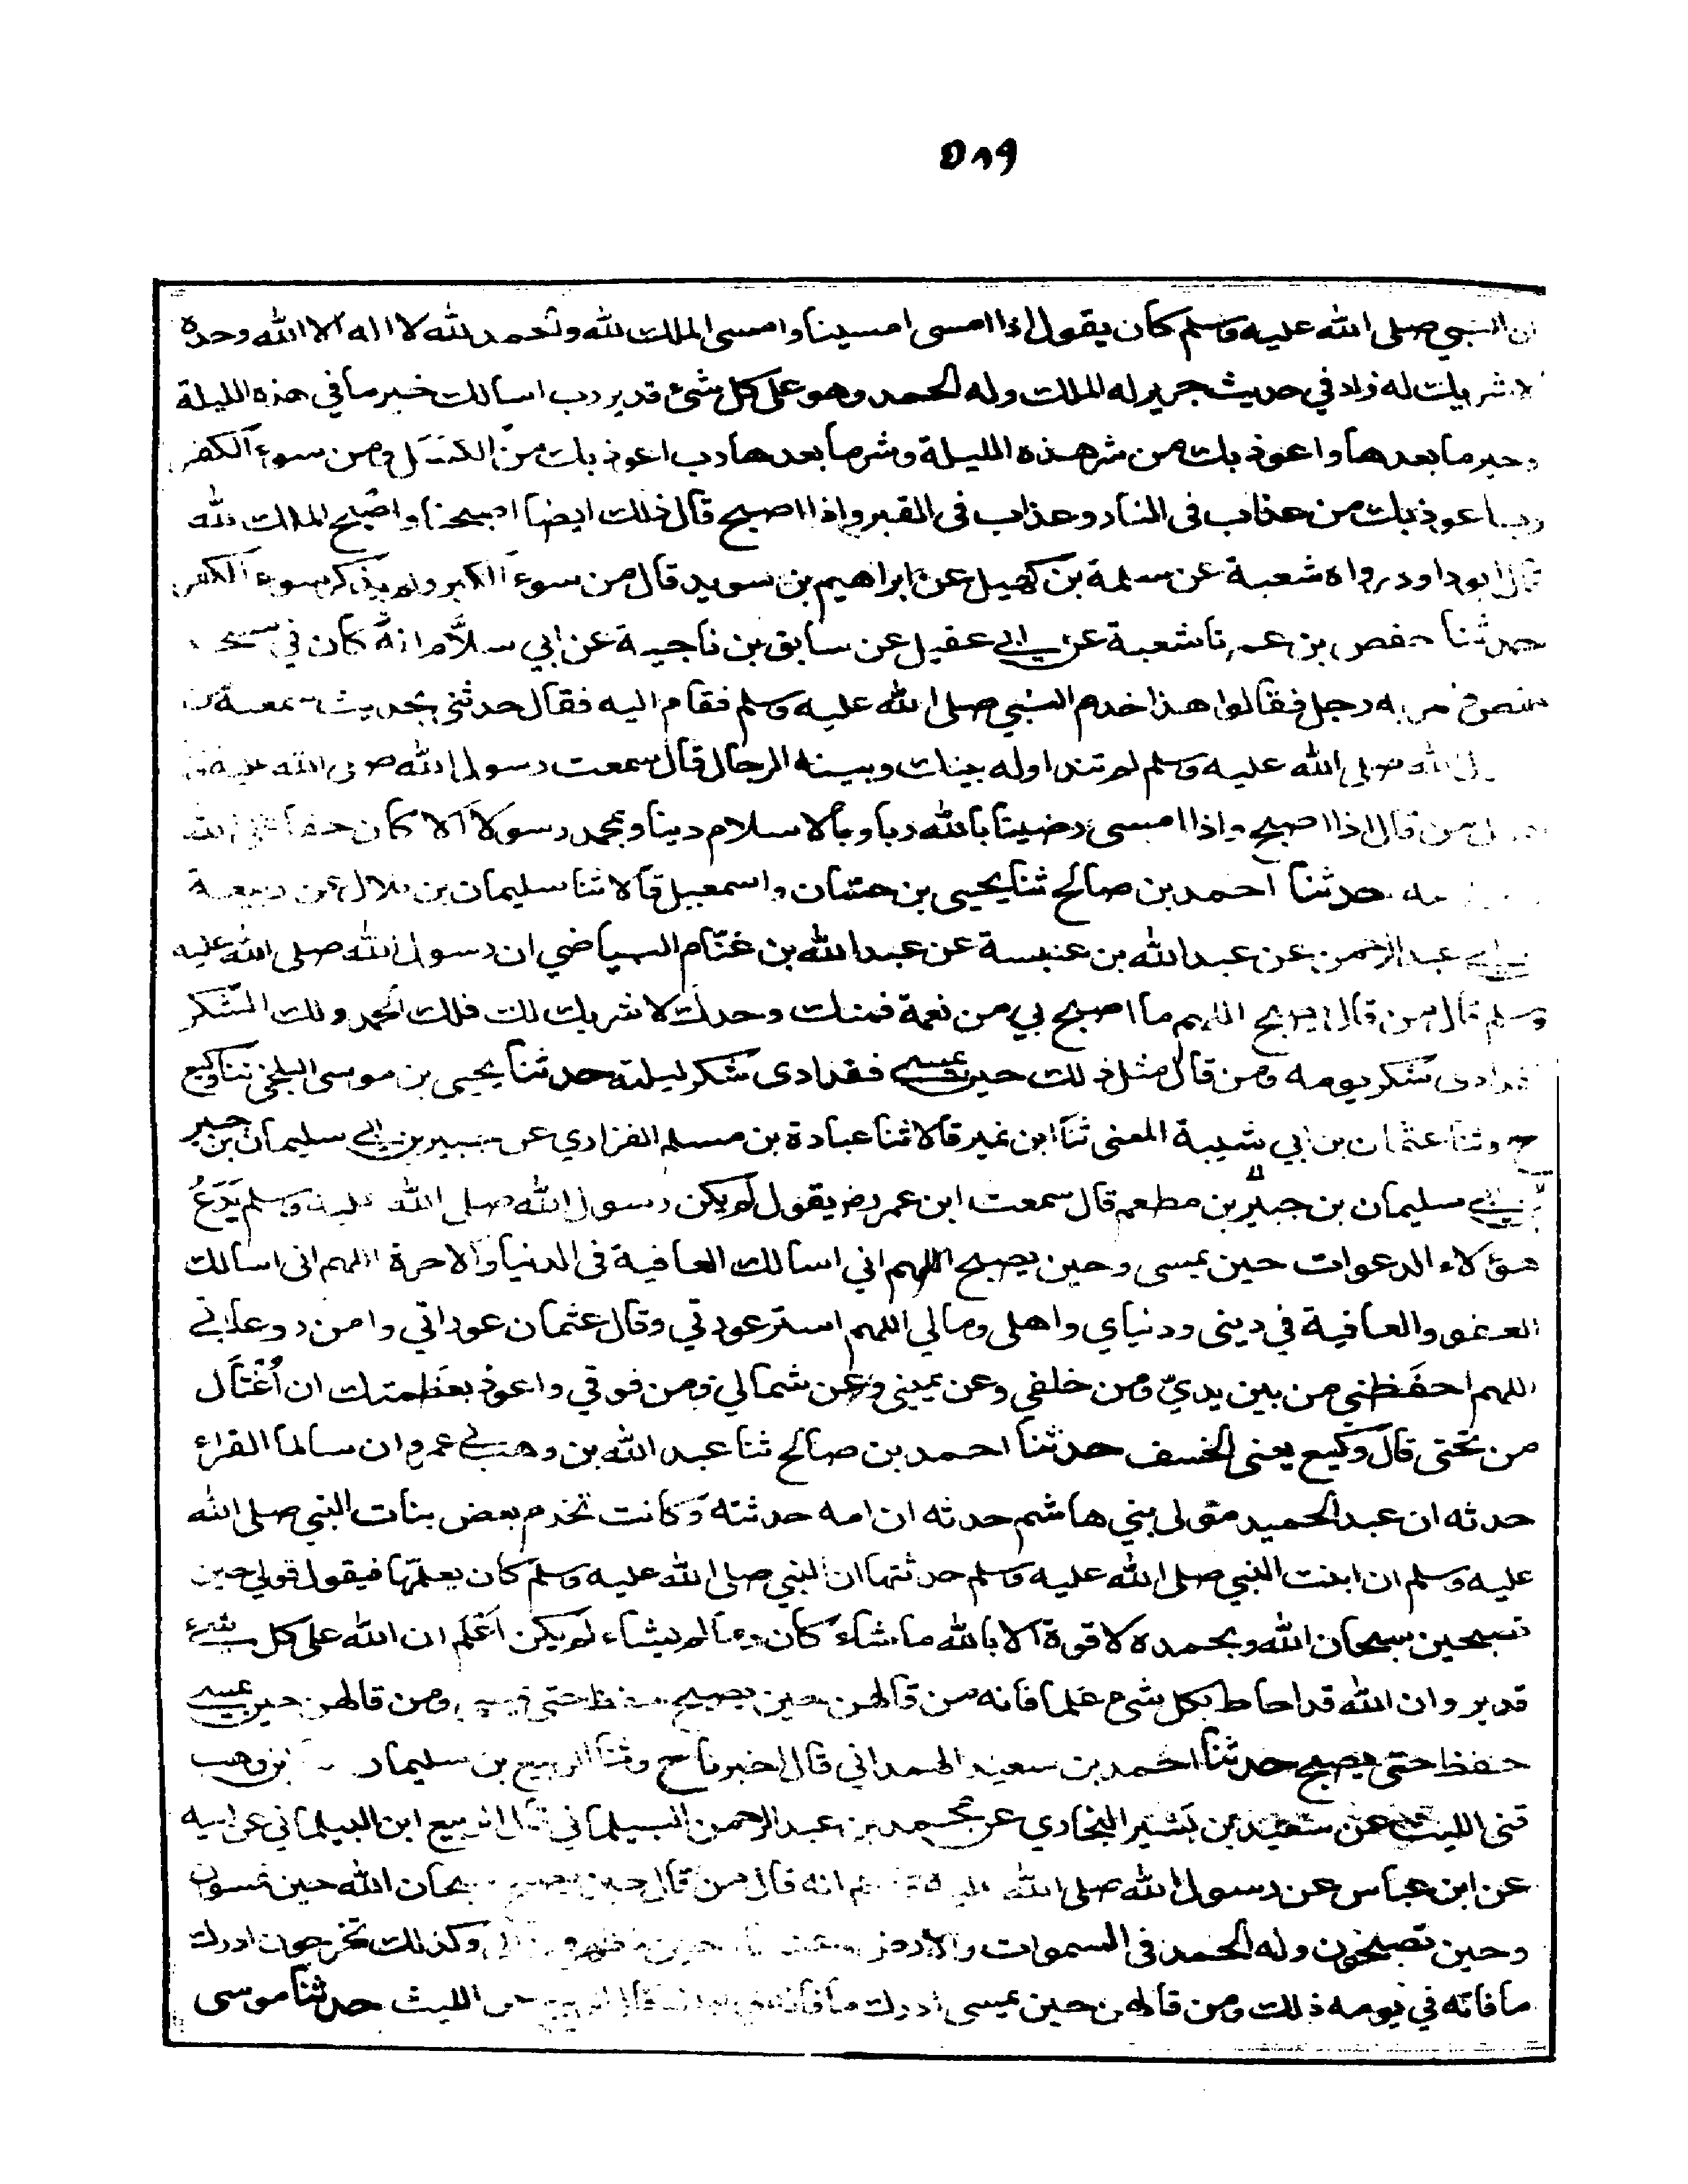 ٥٨٩
ان النبي صلى الله عليه وسلم كان يقول اذا امسى امسينا وامسى الملك لله والحمد لله لا اله الا الله وحده
لا شريك له زاد في حديث جرير له الملك وله الحمد وهو على كل شئ قدير رب اسالك خير ما في هذه الليلة
وخير ما بعدها واعوذ بك من شر هذه الليلة وشر ما بعدها رب اعوذ بك من الكسل ومن سوء الكفر
رب اعوذ بك من عذاب في النار وعذاب في القبر واذا اصبح قال ذلك ايضا اصبحنا واصبح الملك لله
قال ابو داود رواه شعبة عن سلمة بن كهيل عن ابراهيم بن سويد قال من سوء الكبر ولم يذكر سوء الكفر
حدثنا حفص بن عمر نا شعبة عن ابي عقيل عن سابق بن ناجية عن ابي سلام انه كان في مسجد
حمص فمر به رجل فقالوا هذا خدم النبي صلى الله عليه وسلم فقام اليه فقال حدثني بحديث سمعته من
الله صلى الله عليه وسلم لم يتداوله بينك وبينه الرجال قال سمعت رسول الله صلى الله عليه
من قال اذا اصبح واذا امسى رضينا بالله ربا وبالاسلام دينا وبمحمد رسولا الا كان حقا على الله
حدثنا احمد بن صالح ثنا يحيى بن حسان واسمعيل قالا ثنا سليمان بن بلال عن ربيعة
بن ابي عبد الرحمن عن عبد الله بن عنبسة عن عبد الله بن غنام البياضي ان رسول الله صلى الله عليه
وسلم قال من قال حين يصبح اللهم ما اصبح بي من نعمة فمنك وحدك لا شريك لك فلك الحمد ولك الشكر
فقد ادى شكر يومه ومن قال مثل ذلك حين يمسي فقد ادى شكر ليلته حدثنا يحيى بن موسى البلخي ثنا وكيع
ح وثنا عثمان بن ابي شيبة المعنى ثنا ابن نمير قالا ثنا عبادة بن مسلم الفزاري عن جبير بن ابي سليمان بن جبير
بن ابي سليمان بن جبير بن مطعم قال سمعت ابن عمر رض يقول لم يكن رسول الله صلى الله عليه وسلم يَدَعُ
هؤلاء الدعوات حين يمسى وحين يصبح اللهم اني اسالك العافية في الدنيا والاخرة اللهم اني اسالك
العفو والعافية في ديني ودنياي واهلي ومالي اللهم استر عورتي وقال عثمان عوراتي وامن روعاتي
اللهم احفَظني من بين يديّ ومن خلفي وعن يميني وعن شمالي ومن فوقي واعوذ بعَظمتك ان اُغْتَال
من تحتي قال وكيع يعني الخسف حدثنا احمد بن صالح ثنا عبد الله بن وهب ني عمرو ان سالما الفراء
حدثه ان عبد الحميد مولى بني هاشم حدثه ان امه حدثته وكانت تخدم بعض بنات النبي صلى الله
عليه وسلم ان ابنت النبي صلى الله عليه وسلم حدثتها ان النبي صلى الله عليه وسلم كان يعلمها فيقول قولي حين
تصبحين سبحان الله وبحمده لا قوة الا بالله ما شاء كان وما لم يشاء لم يكن اعلم ان الله على كل شئ
قدير وان الله قد احاط بكل شئ علما فانه من قالهن حين يصبح حفظ حتى يمسي ومن قالهن حين يمسي
حفظ حتى يصبح حدثنا احمد بن سعيد الهمداني قال اخبرنا ح وثنا الربيع بن سليمان ابن وهب
ثنى الليث عن سعيد بن بشير البخاري عن محمد بن عبد الرحمن البيلماني قال الربيع ابن البيلماني عن ابيه
عن ابن عباس عن رسول الله صلى الله عليه وسلم انه قال من قال حين يصبح سبحان الله حين تمسون
وحين تصبحون وله الحمد في السموات والارض وعشيا وحين تظهرون الى وكذلك تخرجون ادرك
ما فاته في يومه ذلك ومن قالهن حين يمسى ادرك ما فاته في ليلته قال الربيع عن الليث حدثنا موسى